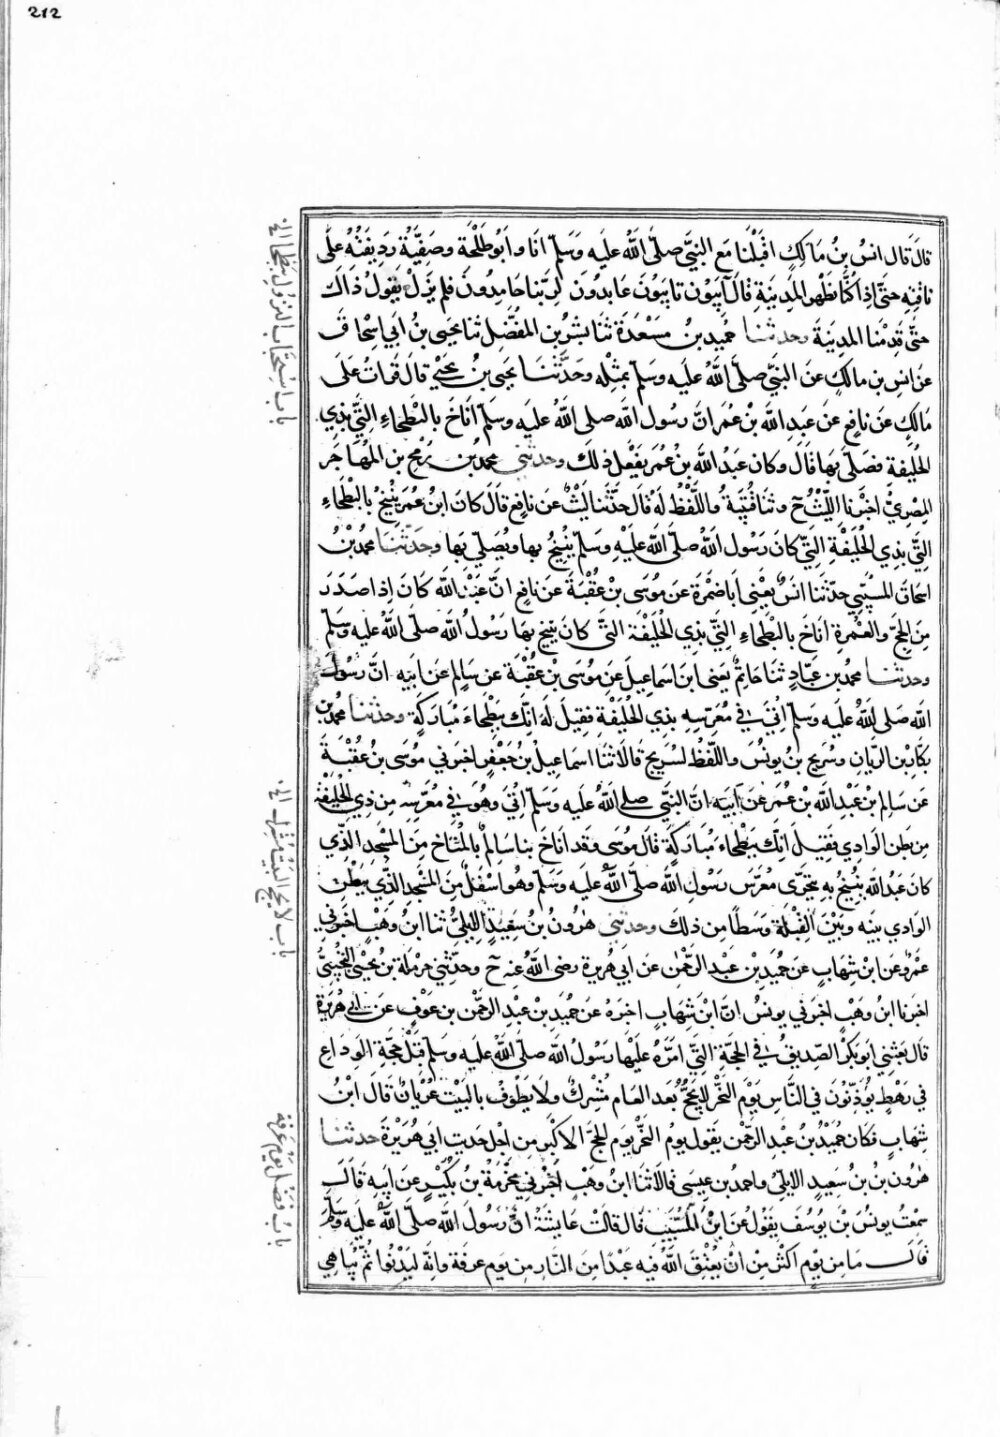 212
قالَ قال انسُ بنُ مَالِكٍ اقبَلْنا مَع النبيّ صلى الله عليه وَسَلم انَا وابُوطَلْحَة وصَفِيّة رَدِيفَتُهُ عَلى
ناقتِهِ حتّى اِذا كُنّا بظَهر المَدِينَةِ قالَ آيبُونَ تايبُونَ عَابدُونَ لِربّنا حَامِدُونَ فلم يَزَلْ يَقول ذٰاك
حتّى قدِمْنا المدِينَةَ وحدثنا حُمَيد بنُ مَسْعَدَة ثَنا بشرُ بن المُفَضّل ثنا يحيى بنُ ابي اِسْحاقَ
عَن انسِ بن مالكٍ عَن النبيّ صلى الله عَليه وَسلم بمثلِهِ وحَدّثَنَا يحيى بنُ يحيٰى قالَ قرَات عَلى
مَالكٍ عَن نافِعٍ عَن عَبد الله بن عُمَر انّ رَسُول الله صلى الله عليه وسلم اَنَاخَ بالبَطحاءِ التِي بذِي
الحُلَيفَة فصَلى بهَا قالَ وكان عَبدُ الله بنُ عُمَر يَفعَل ذلكَ وحدثني محمدُ بن رُمْح بن المُهاجَر
المِصْريّ اخبرَنا اللّيثُ ح وثنا قتَيبَةُ واللّفظُ لهُ قالَ حَدّثَنا ليثٌ عَن نافِعٍ قالَ كانَ ابنُ عمَر يُنِيخُ بالبَطحاءِ
التِي بذِي الحُلَيْفةِ التي كانَ رَسُول الله صلى الله عليْهِ وَسلم يُنيخُ بها ويُصَلي بها وحدّثنا محمدُ بنُ
اسحاقَ المسَيّبي حدّثنا انسٌ يَعْني اَبا ضَمْرَة عَن مُوسَى بن عُقبَةَ عَن نافِعٍ انّ عَبدَ الله كَانَ اِذا صَدَرَ
مِنَ الحجّ والعُمرةِ اَناخَ بالبَطحاءِ التي بذِي الحُلَيفة التي كانَ ينيخ بهَا رَسُولُ الله صلى الله عليه وسلم
وحدثنا محمدُ بن عَبّادٍ ثنا حَاتِمٌ يَعني ابن اسمَاعيلَ عَن مُوسَى بن عُقبَة عن سَالِم عَن اَبيهِ انّ رسُولَ
الله صَلى الله عليه وسَلم اُتِيَ في مُعَرّسِهِ بذِي الحُلَيفَةِ فقِيلَ لهُ انّك ببَطحاءَ مُبَاركةٍ وحدثنا محمدُ بن
بكّارِ بن الرّيانِ وسُرَيج بنُ يونُسَ واللّفظ لسُرَيج قالا ثنا اسمَاعيلُ بن جَعفرٍ اخبرَني مُوسَى بن عُقبَةَ
عَن سَالِم بْن عَبدِ الله بن عُمَر عَن اَبيهِ انّ النّبيّ صلى الله عَليه وَسلم اُتِيَ وهُوَ في مُعَرّسِهِ مِن ذِي الحُلَيفة
مِن بَطن الوَادِي فقِيلَ اِنّك ببَطحاءَ مُبَاركةٍ قالَ مُوسَى وقد انَاخَ بنا سَالِم بالمُناخ مِنَ المَسْجدِ الذِي
كانَ عَبدُ الله يُنيخُ بهِ يتحَرّى مُعَرّسَ رَسُولِ الله صلى الله عليه وَسَلم وهُو اسْفَل مِنَ المسْجدِ الذي ببَطْن
الوَادِي بينَه وبَيْنَ القِبْلَة وَسَطًا مِن ذلكَ وحدثني هٰرون بن سَعيدٍ الايلِيّ ثنا ابنُ وهْبٍ اخبرَني
عَمرٌو عَن ابن شِهابٍ عَن حُمَيدِ بن عَبد الرّحمٰن عَن ابي هريرة رضى الله عنه ح وحدّثني حَرملة بن يحيى التجيبيّ
اخبرنا ابنُ وَهْبٍ اخبرَني يونُسُ انّ ابْنَ شِهابٍ اخبرهُ عَن حُمَيدِ بن عَبدِ الرحمٰن بن عَوفٍ عَن ابي هُرَيرة
قال بَعَثَنِي اَبو بَكرٍ الصّديقُ في الحجّةِ التِي امّرهُ عَليْها رَسُول الله صلى الله عليه وسَلم قبْل حَجّة الوِدَاعِ
في رَهطٍ يُؤذّنُونَ في النّاسِ يَوْم النّحرِ لا يَحُجّ بَعدَ العام مُشركٌ ولا يَطوفُ بالبَيْت عُرْيَانٌ قال ابْنُ
شِهابٍ فكانَ حُمَيدُ بن عَبدِ الرّحمٰن يَقول يومُ النّحرِ يَوم الحَجّ الاكبَر مِن اجلِ حَديث ابي هُرَيْرةَ حدثنا
هٰرون بنُ بنُ سَعيدٍ الايلِيّ واحمدُ بن عيسَى قالا ثَنا ابنُ وهبٍ اخبرَني مَخْرَمَةُ بن بُكَيرٍ عَن اَبيهِ قالَ
سَمِعْتُ يُونسَ بْنَ يُوسُفَ يَقولُ عَن ابنِ المُسَيّب قالَ قالَتْ عَايشَةُ انّ رَسُولَ الله صَلّى الله عَليهِ وسلم
قالَ مَا مِن يَومٍ اكثرَ مِن انْ يُعْتِقَ الله فيه عَبْدًا مِنَ النّارِ مِن يَوم عَرفَة وانّه ليَدْنُوا ثُم يُبَاهِي
باب اسْتِحْبَاب النزول ببَطحا الخ
باب لا يحج البَيْت مُشرك الخ
بابُ فَضل يَوْم عَرفة